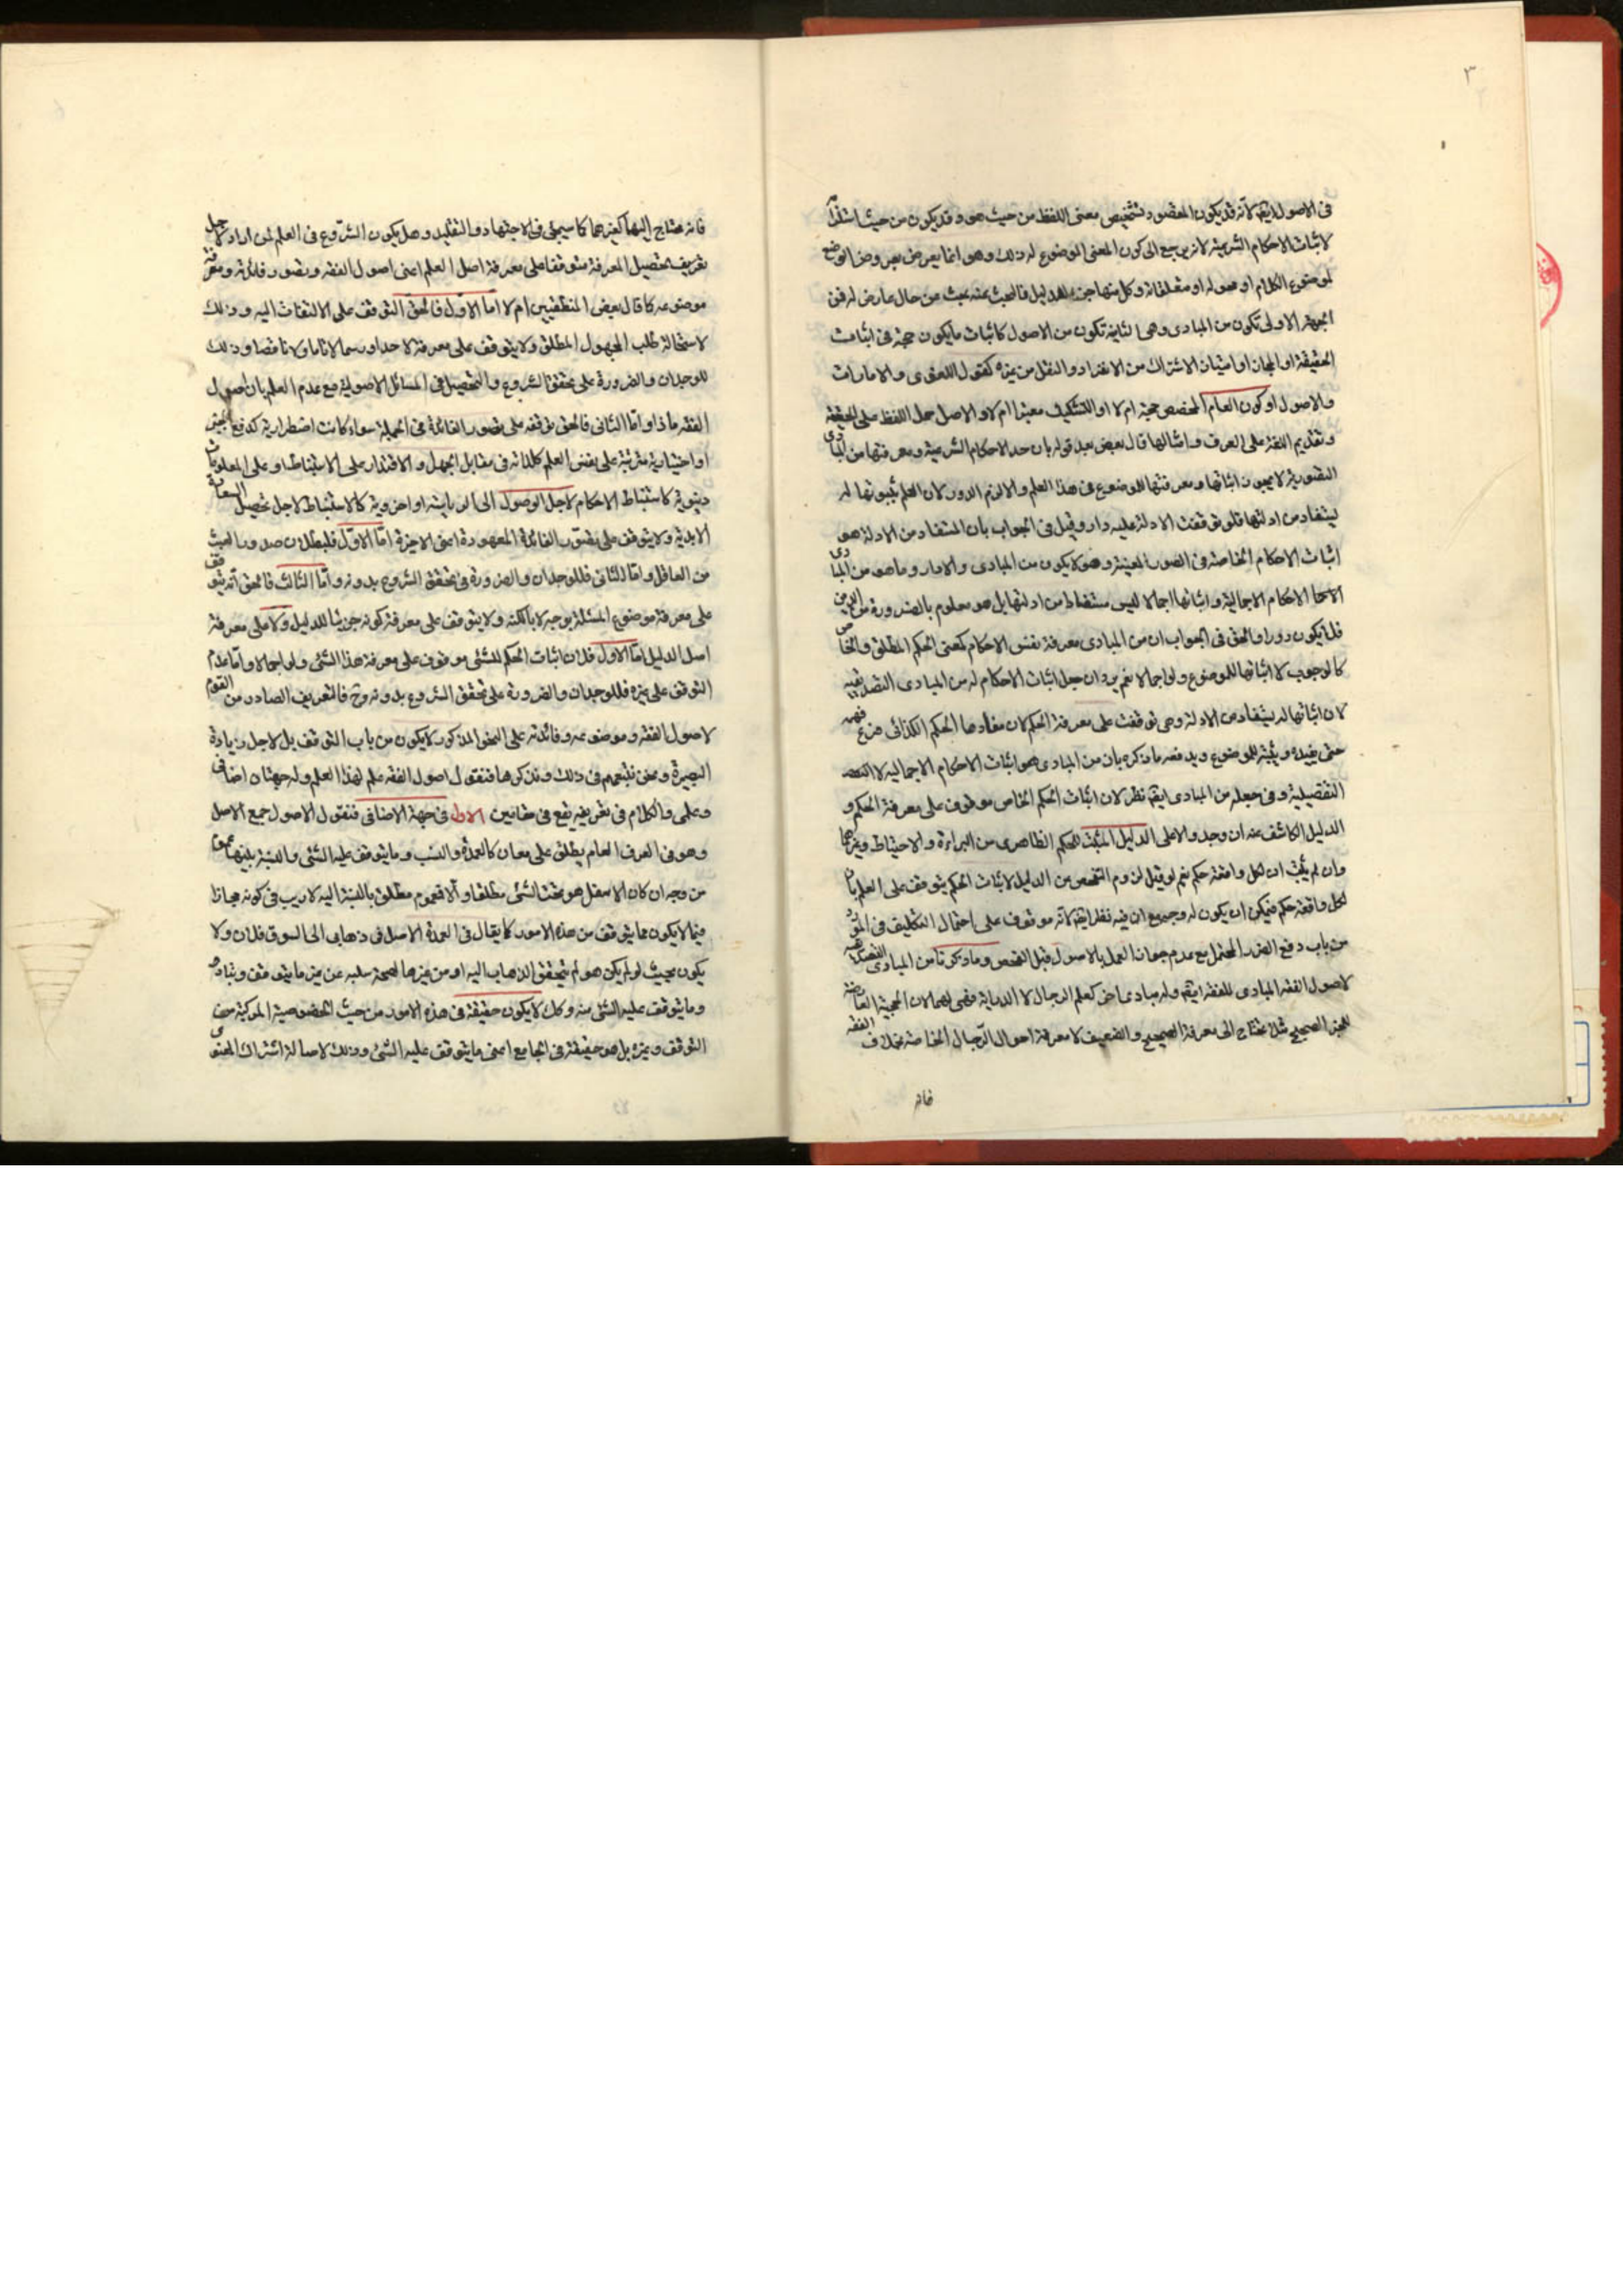 ٣
فى الاصول ايضا لانه قد يكون المقصود تشخيص معنى اللفظ من حيث هو وقد يكون من حيث
لاثبات الاحكام الشرعية لانه يرجع الى كون المعنى الموضوع له ذلك وهو انما يعرض بعروض الوضع
لموضوع الكلام او محموله او متعلقاته وكل منها جزء للدليل فالبحث عنه بحث عن حال عارض له فمن
الجهة الاولى تكون من المبادى وهى الثانية تكون من الاصول كاثبات ما يكون حجة فى اثبات
الحقيقة او المجاز او اثبات الاشتراك من الانفراد والنقل من غيره كقول اللغوى والامارات
والاصول او كون العام المخصص حجة ام لا او التشكيك معتبرا ام لا والاصل حمل اللفظ على الحقيقة
وتقديم اللغة على العرف وامثالها قال بعض بعد قوله بان حد الاحكام الشرعية ومعرفتها من المبادى
التصورية لا يجوز اثباتها ومعرفتها للموضوع فى هذا العلم والا لزم الدور لان العلم بثبوتها له
يستفاد من ادلتها فلو توقفت الادلة عليه دار وقيل فى الجواب بان المستفاد من الادلة هو
اثبات الاحكام الخاصة فى الصور المعينة وهو لا يكون من المبادى والا دار وما هو من المبادى
الاحكام الاجمالية واثباتها اجمالا ليس مستفادا من ادلتها بل هو معلوم بالضرورة من الدين
فلا يكون دورا والحق فى الجواب ان من المبادى معرفة نفس الاحكام كمعنى الحكم المطلق والخاص
كالوجوب لا اثباتها للموضوع ولو اجمالا نعم يرد ان جعل اثبات الاحكام له من المبادى التصديقية
لان اثباتها له يستفاد من الادلة وهى توقفت على معرفة الحكم لان مفادها الحكم الكذائى فرع فهمه
حتى يفيده ويثبته للموضوع ويدفعه ما ذكره بان من المبادى هو اثبات الاحكام الاجمالية لا
التفصيلية وفى جعله من المبادى ايضا نظر لان اثبات الحكم الخاص موقوف على معرفة الحكم و
الدليل الكاشف عنه ان وجد والا على الدليل المثبت للحكم الظاهرى من البراءة والاحتياط وغيرها
وان لم يثبت ان لكل واقعة حكم نعم لو قيل لزوم التفحص من الدليل لاثبات الحكم يتوقف على العلم بان
لكل واقعة حكم فيمكن ان يكون له وجه مع ان فيه نظر ايضا لانه موقوف على احتمال التكليف فى
من باب دفع الضرر المحتمل مع عدم جواز العمل بالاصول قبل الفحص وما ذكرنا من المبادى
لاصول الفقه المبادى للفقه ايضا وله مبادى اخر كعلم الرجال لا الدراية
للخبر الصحيح مثلا يحتاج الى معرفة الصحيح والضعيف لا معرفة احوال الرجال الخاصة بخلاف الفقه
فانه
فانه محتاج اليها كغيرهما كما سيجئ فى الاجتهاد والتقليد وهل يكون الشروع فى العلم لمن اراد لاجل
تعريف تحصيل المعرفة متوقفا على معرفة اصل العلم اعنى اصول الفقه وتصور فائدته ومعرفة
موضوعه كما قال بعض المنطقيين ام لا اما الاول فالحق التوقف على الالتفات اليه وذلك
لاستحالة طلب المجهول المطلق ولا يتوقف على معرفة لا حدا ورسما لا تاما ولا ناقصا وذلك
للوجدان والضرورة على تحقق الشروع والتحصيل فى المسائل الاصولية مع عدم العلم بان اصول
الفقه ماذا واما الثانى فالحق توقفه على تصور الفائدة فى الجملة سواء كانت اضطرارية كدفع
او اختيارية مترتبة على نفس العلم كلذاته فى مقابل الجهل والاقتدار على الاستنباط او على المعلومات
دنيوية كاستنباط الاحكام لاجل الوصول الى الرياسة او اخروية كالاستنباط لاجل تحصيل السعادة
الابدية ولا يتوقف على تصور الفائدة المعهودة اعنى الاخيرة اما الاول فلبطلان صدور العبث
من العاقل واما الثانى فللوجدان والضرورة فى تحقق الشروع بدونه واما الثالث فالحق انه يتوقف
على معرفة موضوع المسئلة بوجه لا بالكنه ولا يتوقف على معرفة كونه جزئيا للدليل ولا على معرفة
اصل الدليل اما الاول فلان اثبات الحكم للشئ موقوف على معرفة هذا الشئ ولو اجمالا واما عدم
التوقف على غيره فللوجدان والضرورة على تحقق الشروع بدونه وح فالتعريف الصادر من القوم
لاصول الفقه وموضوعه وفائدته على النحو المذكور لا يكون من باب التوقف بل لاجل زيادة
البصيرة ونحن نتبعهم فى ذلك ونذكرها فنقول اصول الفقه علم لهذا العلم وله جهتان اضافى
وعلمى والكلام فى تعريفه يقع فى مقامين الاول فى جهة الاضافى فنقول الاصول جمع الاصل
وهو فى العرف العام يطلق على معان كالعمدة والنسب وما يتوقف عليه الشئ والنسبة بينها عموم
من وجه ان كان الاسفل هو تحت الشئ مطلقا والا فعموم مطلق بالنسبة اليه لا ريب فى كونه مجازا
فيما لا يكون مما يتوقف من هذه الامور كما يقال فى العمدة الاصل فى ذهابى الى السوق فلان ولا
يكون بحيث لو لم يكن هو لم يتحقق الذهاب اليه او من غيرها لصحة سلبه عن غير ما يتوقف وتبادر
وما يتوقف عليه الشئ منه وكل لا يكون حقيقة فى هذه الامور من حيث الخصوصية المركبة من
التوقف وغيره بل هو حقيقة فى الجامع اعنى ما يتوقف عليه الشئ وذلك لاصالة اشتراك المعنوى